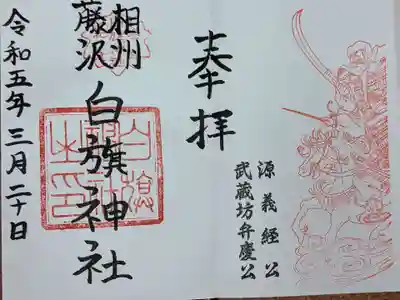 奉拝
源義経公
武蔵坊弁慶公
相州
藤沢
白旗神社
令和五年三月二十日